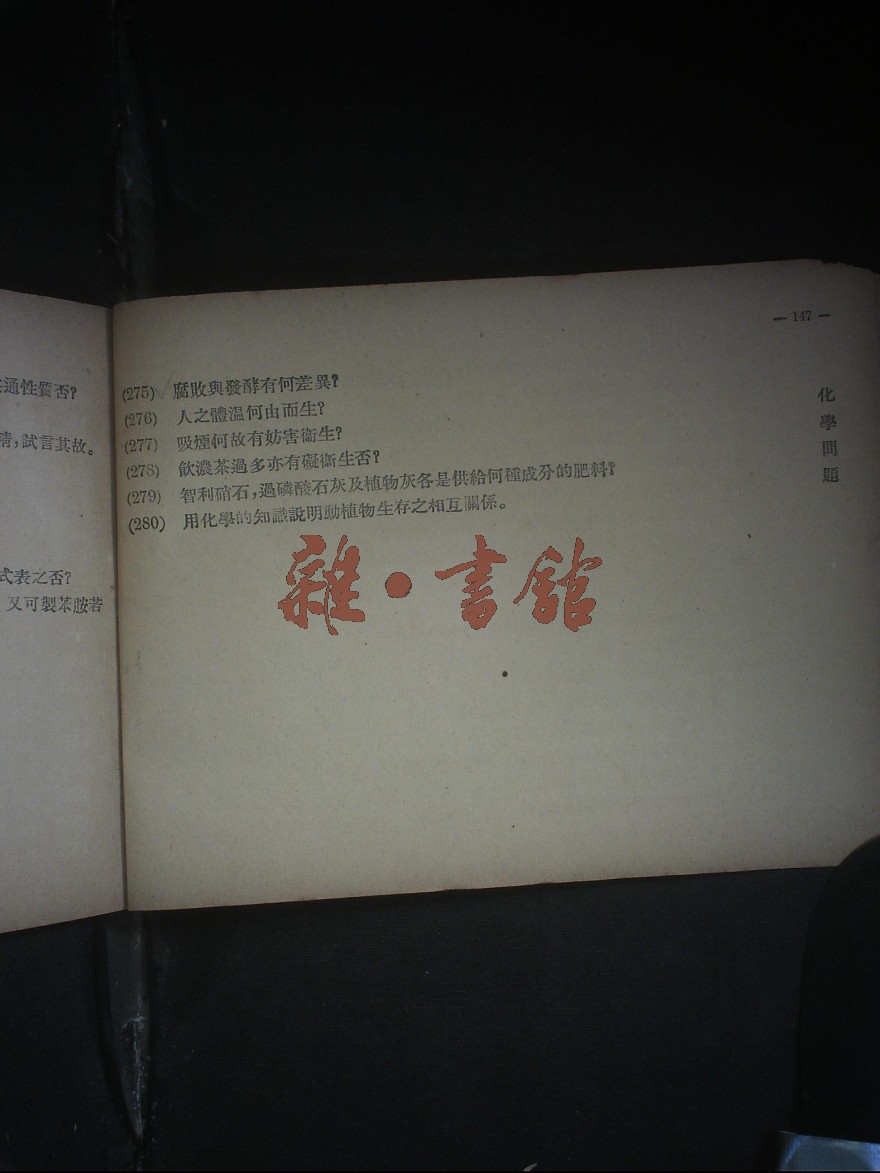 — 147 —
化學問題
通性質否？
精，試言其故。
式表之否？
又可製苯胺若
(275) 腐敗與發酵有何差異？
(276) 人之體温何由而生？
(277) 吸煙何故有妨害衞生？
(278) 飲濃茶過多亦有礙衞生否？
(279) 智利硝石，過磷酸石灰及植物灰各是供給何種成分的肥料？
(280) 用化學的知識說明動植物生存之相互關係。
雜•書館